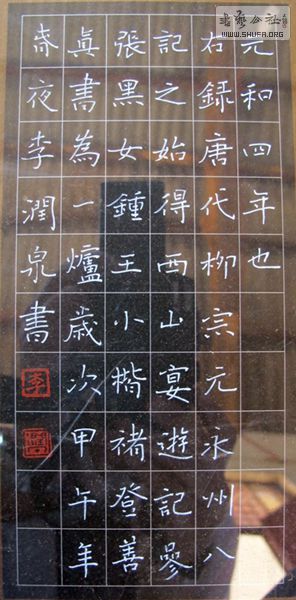 元和四年也
右録唐代柳宗元永州八
記之始得西山宴遊記參
張黑女鍾王小楷褚登善
真書為一爐歲次甲午年
春夜李潤泉書
李
書藝公社
WWW.SHUFA.ORG